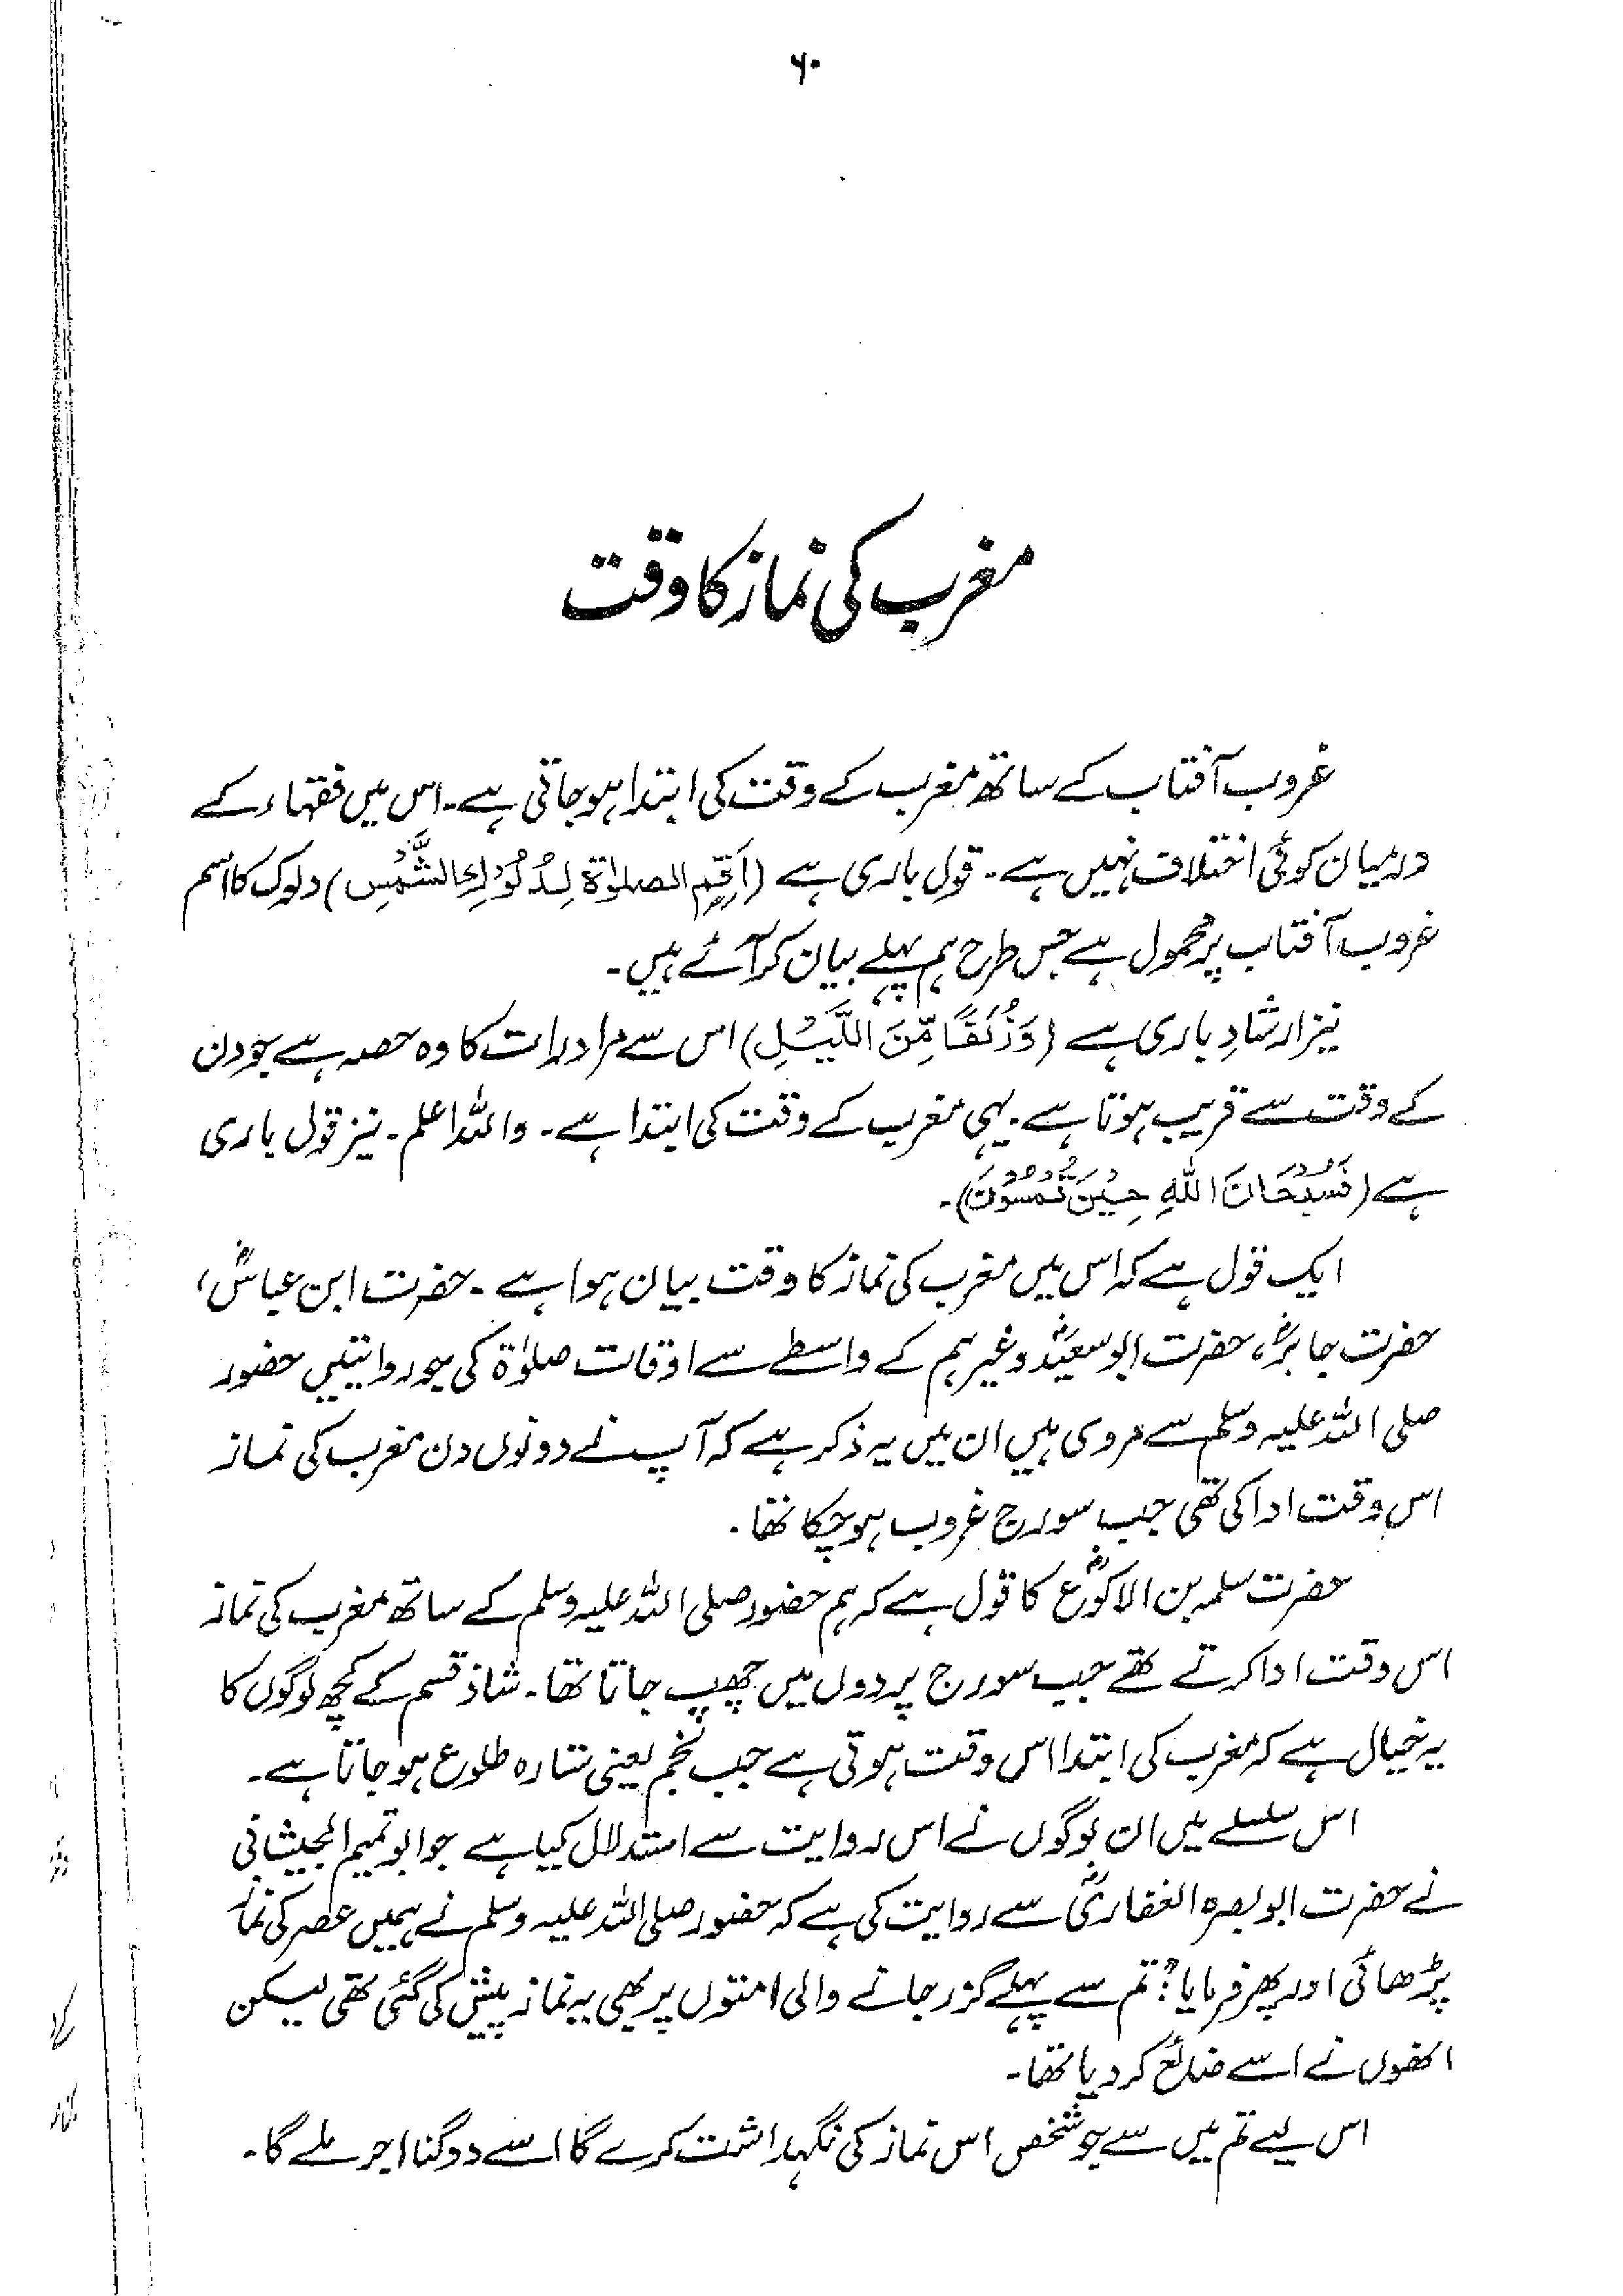 ۶۰
مغرب کی نماز کا وقت
غروب آفتاب کے ساتھ مغرب کے وقت کی ابتدا ہو جاتی ہے۔ اس میں فقہاء کے
درمیان کوئی اختلاف نہیں ہے۔ قول باری ہے (اَقِمِ الصلوٰۃَ لِدُلُوْكِ الشَّمْسِ) دلوک کا اسم
غروب آفتاب پر محمول ہے جس طرح ہم پہلے بیان کر آئے ہیں۔
نیز ارشادِ باری ہے (وَزُلَفًا مِّنَ اللَّیْلِ) اس سے مراد رات کا وہ حصہ ہے جو دن
کے وقت سے قریب ہوتا ہے۔ یہی مغرب کے وقت کی ابتدا ہے۔ واللہ اعلم۔ نیز قول باری
ہے (فَسُبْحَانَ اللّٰهِ حِیْنَ تُمْسُوْنَ)۔
ایک قول ہے کہ اس میں مغرب کی نماز کا وقت بیان ہوا ہے۔ حضرت ابن عباسؓ،
حضرت جابرؓ، حضرت ابو سعیدؓ وغیرہم کے واسطے سے اوقات صلوٰۃ کی جو روایتیں حضور
صلی اللہ علیہ وسلم سے مروی ہیں ان میں یہ ذکر ہے کہ آپ نے دونوں دن مغرب کی نماز
اس وقت ادا کی تھی جب سورج غروب ہو چکا تھا۔
حضرت سلمہ بن الاکوعؓ کا قول ہے کہ ہم حضور صلی اللہ علیہ وسلم کے ساتھ مغرب کی نماز
اس وقت ادا کرتے تھے جب سورج پردوں میں چھپ جاتا تھا۔ شاذ قسم کے کچھ لوگوں کا
یہ خیال ہے کہ مغرب کی ابتدا اس وقت ہوتی ہے جب نجم یعنی ستارہ طلوع ہو جاتا ہے۔
اس سلسلے میں ان لوگوں نے اس روایت سے استدلال کیا ہے جو ابو تمیم الجیشانی
نے حضرت ابو بصرہ الغفاریؓ سے روایت کی ہے کہ حضور صلی اللہ علیہ وسلم نے ہمیں عصر کی نماز
پڑھائی اور پھر فرمایا: تم سے پہلے گزر جانے والی امتوں پر بھی یہ نماز پیش کی گئی تھی لیکن
انھوں نے اسے ضائع کر دیا تھا۔
اس لیے تم میں سے جو شخص اس نماز کی نگہداشت کرے گا اسے دوگنا اجر ملے گا۔